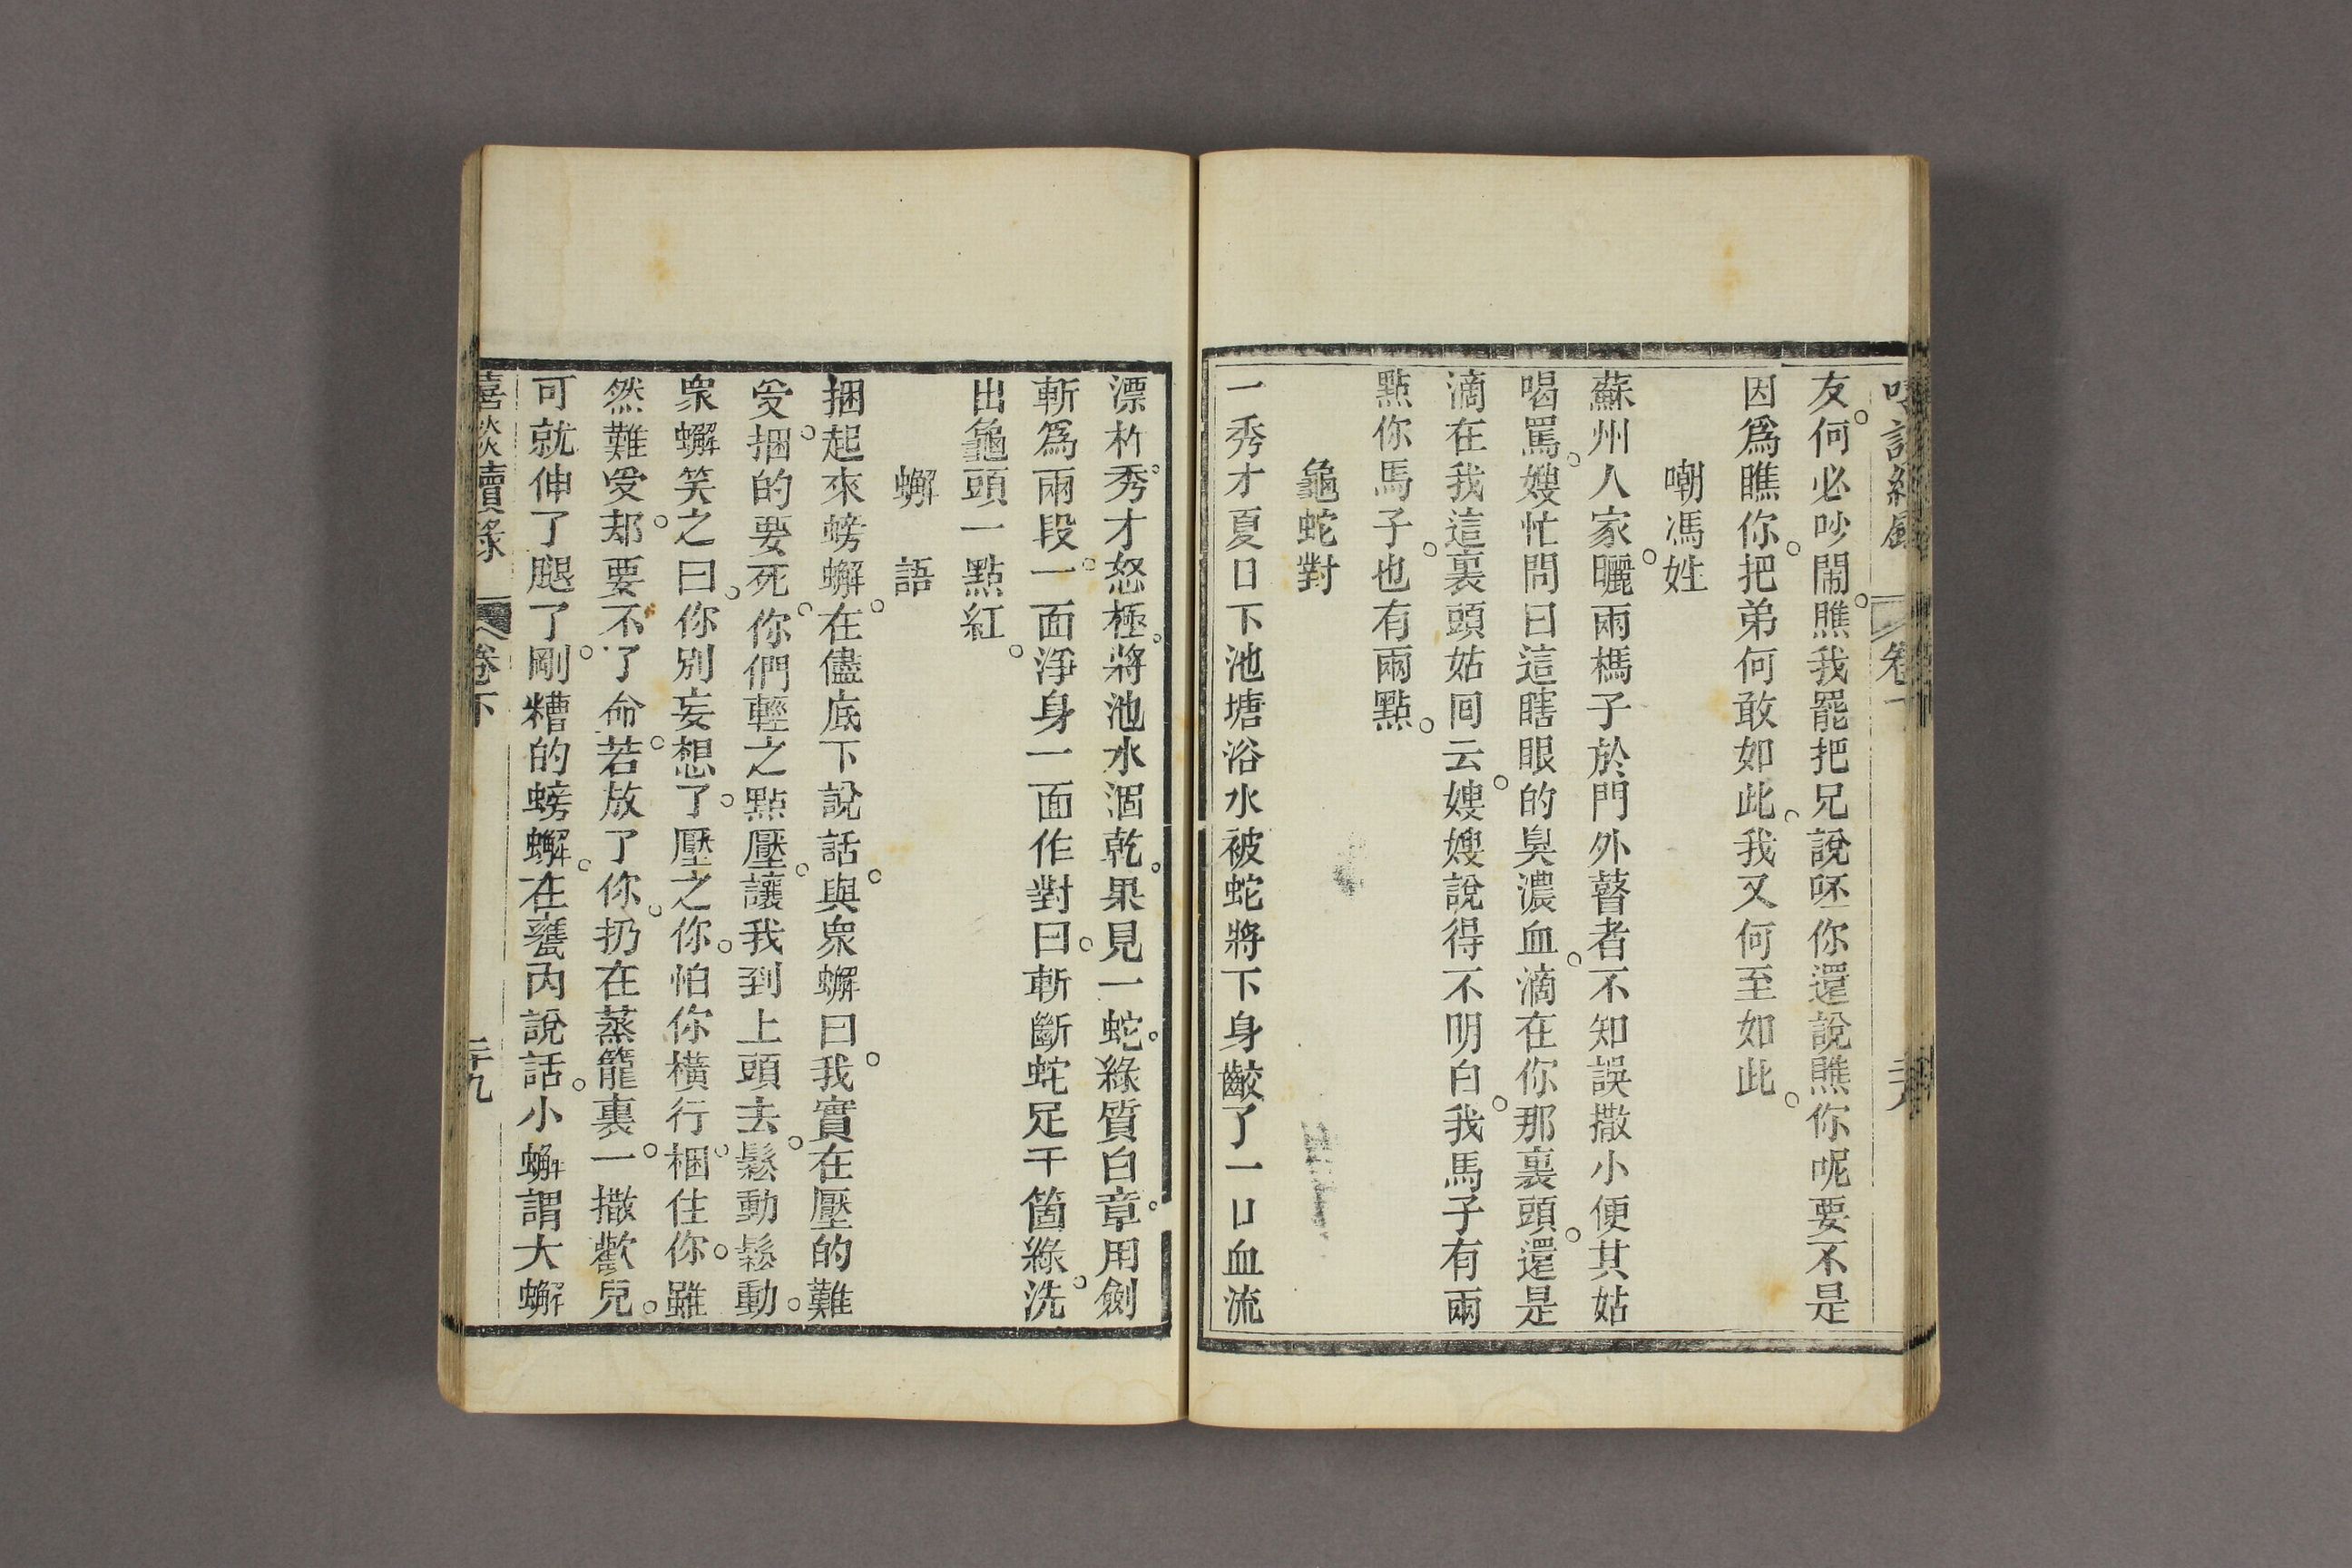 友。何必吵鬧。瞧我罷把兄說呸你還說瞧你呢要不是
因爲瞧你。把弟何敢如此。我又何至如此。
嘲馮姓
蘇州人家。曬兩榪子於門外瞽者不知誤撒小便其姑
喝罵。嫂忙問曰這瞎眼的臭濃血。滴在你那裏頭。還是
滴在我這裏頭姑回云。嫂嫂說得不明白。我馬子有兩
點你馬子。也有兩點。
龜蛇對
一秀才夏日下池塘浴水被蛇將下身齩了一口血流
漂杵。秀才怒極。將池水涸乾。果見一蛇。綠質白章。用劍
斬爲兩段。一面淨身一面作對曰。斬斷蛇足千箇綠。洗
出龜頭一點紅。
蠏語
捆起來螃蠏。在儘底下說話。與衆蠏曰。我實在壓的難
受。捆的要死。你們輕之點壓。讓我到上頭去。鬆動鬆動。
衆蠏笑之曰。你別妄想了。壓之你。怕你橫行。捆住你。雖
然難受。却要不了命。若放了你。扔在蒸籠裏。一撒歡兒。
可就伸了腿了。剛糟的螃蠏。在甕內說話。小蠏謂大蠏
喜談續錄 卷下 二十九